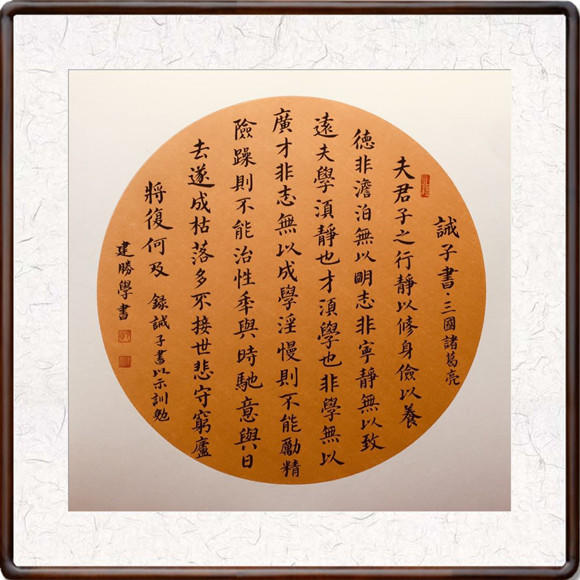 誡子書·三國諸葛亮
夫君子之行靜以修身儉以養
德非澹泊無以明志非寧靜無以致
遠夫學須靜也才須學也非學無以
廣才非志無以成學淫慢則不能勵精
險躁則不能治性年與時馳意與日
去遂成枯落多不接世悲守窮廬
將復何及 錄誡子書以示訓勉
建勝學書